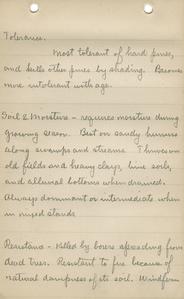 Tolerance.
Most tolerant of hard pines,
and kills other pines by shading. Becomes
more intolerant with age.
Soil & Moisture - requires moisture during
growing season. Best on sandy humus
along swamps and streams. Thrives on
old fields and heavy clays, lime soils,
and alluvial bottoms when drained.
Always dominant or intermediate when
in mixed stands
Resistance - Killed by borers spreading from
dead trees. Resistant to fire because of
natural dampness of its soil. Windfirm